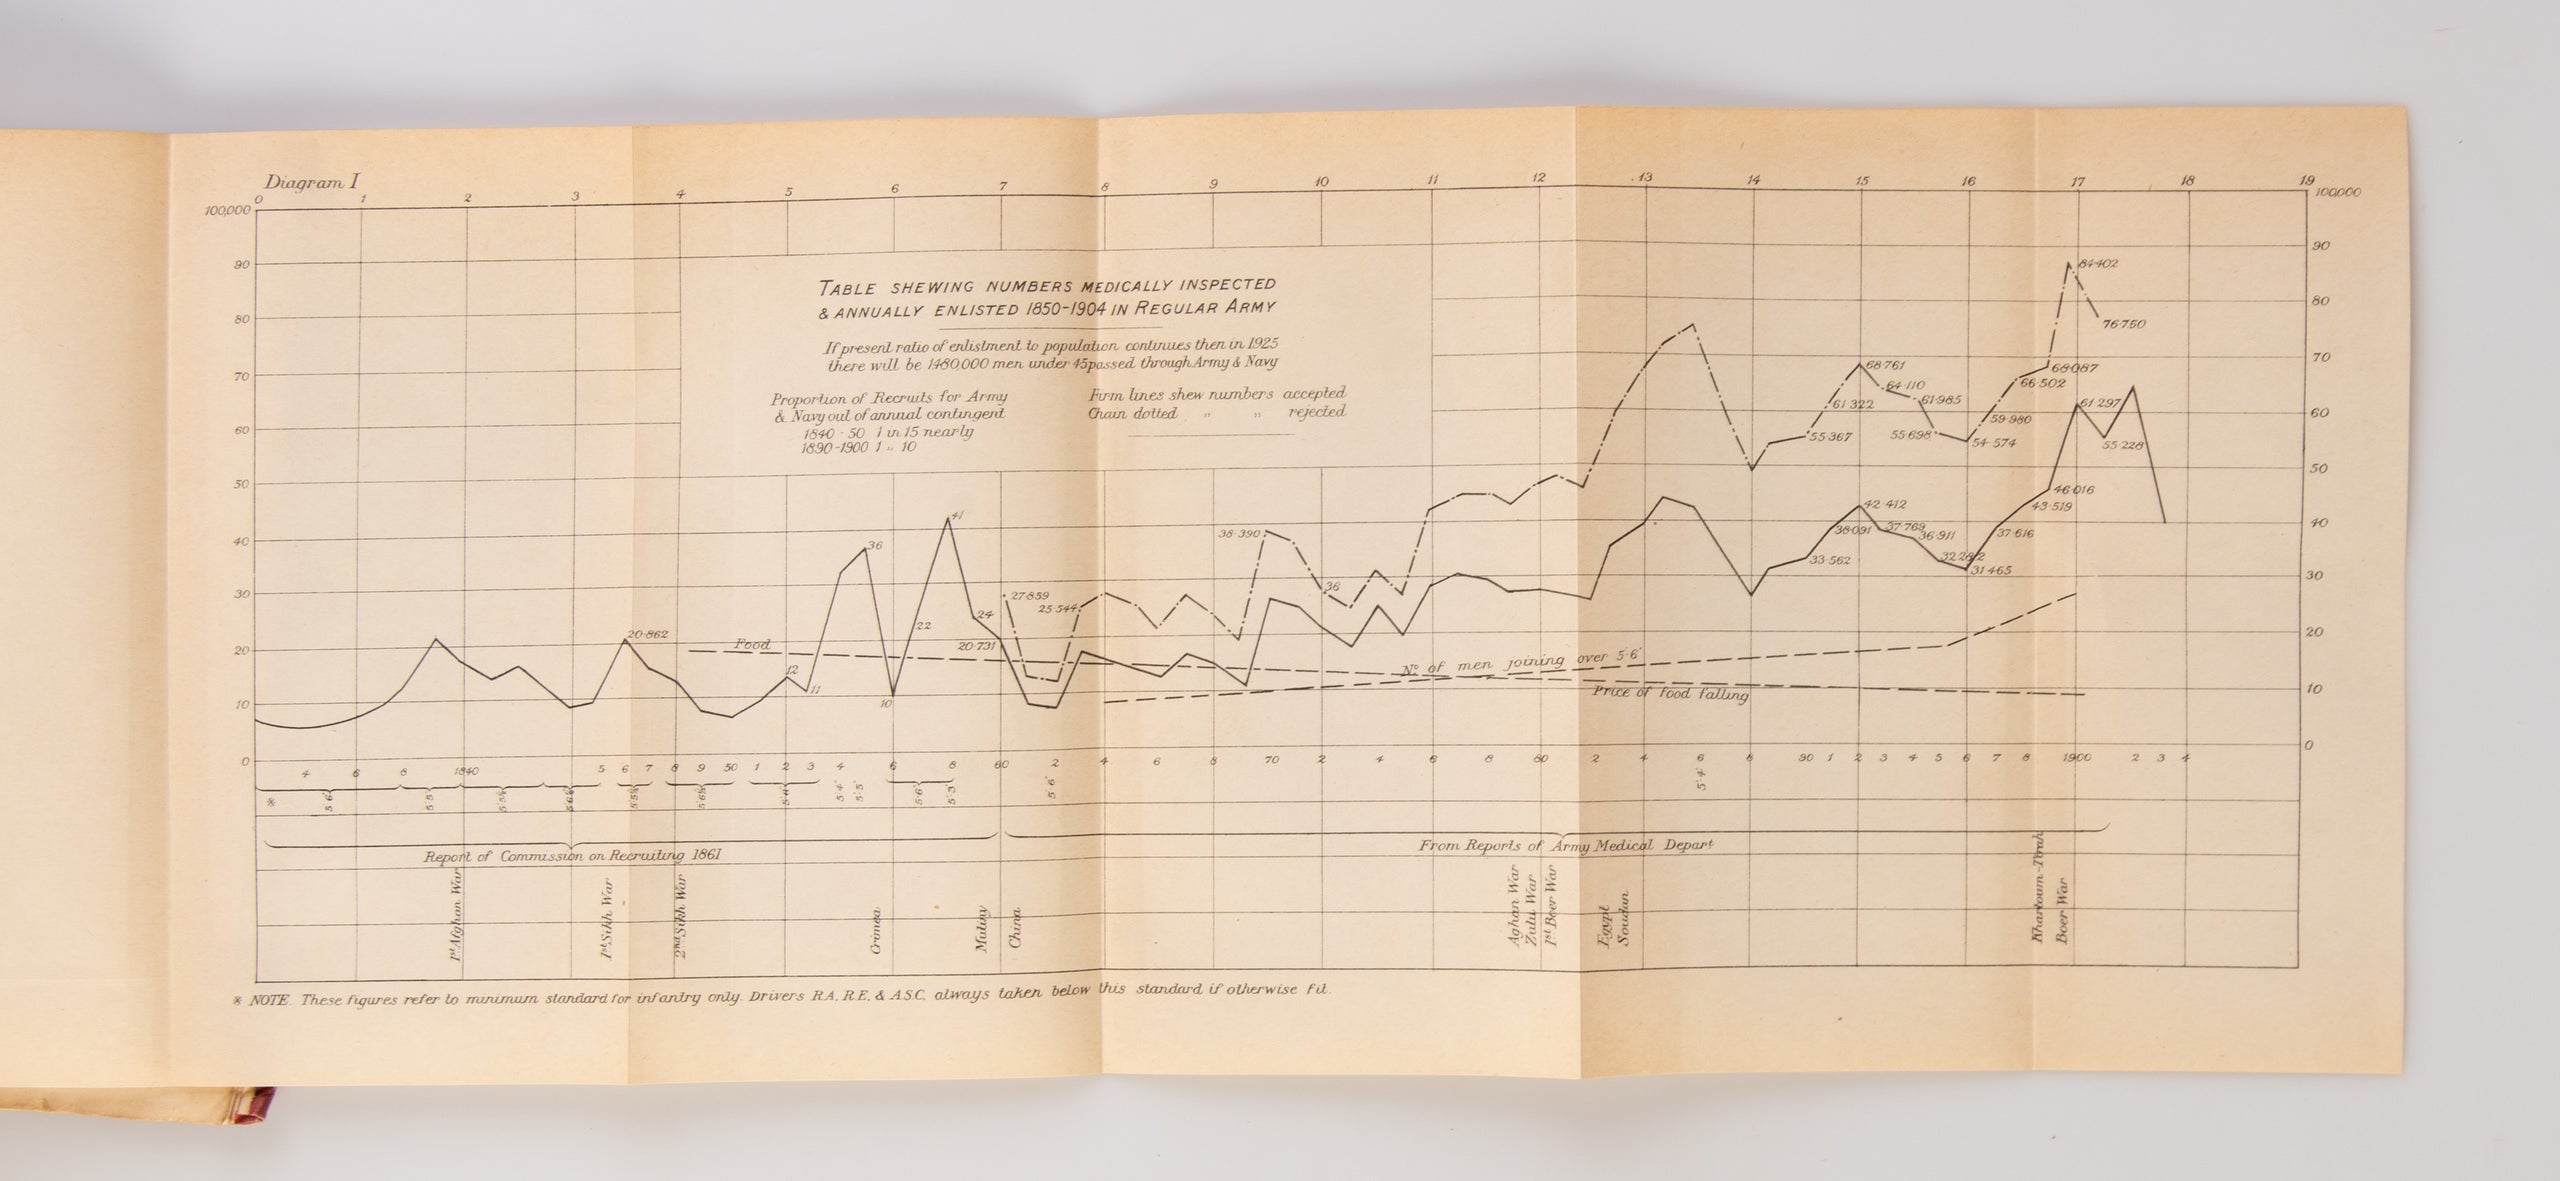 Diagram I
0 1 2 3 4 5 6 7 8 9 10 11 12 13 14 15 16 17 18 19
100,000
100,000
90
80
70
60
50
40
30
20
10
0
90
80
70
60
50
40
30
20
10
0
TABLE SHEWING NUMBERS MEDICALLY INSPECTED
& ANNUALLY ENLISTED 1850-1904 IN REGULAR ARMY
If present ratio of enlistment to population continues then in 1925
there will be 1480,000 men under 45 passed through Army & Navy
Proportion of Recruits for Army
& Navy out of annual contingent
1840 - 50 1 in 15 nearly
1890-1900 1 „ 10
Firm lines shew numbers accepted
Chain dotted „ „ rejected
20·862
Food
12
11
36
10
22
41
24
20·731
27·859
25·544
38·390
36
55·367
61·322
68·761
64·110
61·985
55·698
54·574
59·980
66·502
68·087
84·402
76·750
33·562
38·091
42·412
37·769
36·911
32·282
31·465
37·616
43·519
46·016
61·297
55·228
No. of men joining over 5·6
Price of food falling
4 6 8 1840 5 6 7 8 9 50 1 2 3 4 6 8 60 2 4 6 8 70 2 4 6 8 80 2 4 6 8 90 1 2 3 4 5 6 7 8 1900 2 3 4
※ 5·6 5·5 5·4 5·5 5·6 5·3 5·6 5·4
Report of Commission on Recruiting 1861
From Reports of Army Medical Depart
1st Afghan War
1st Sikh War
2nd Sikh War
Crimea
Mutiny
China
Aghan War
Zulu War
1st Boer War
Egypt
Soudan
Khartoum-Tirah
Boer War
※ NOTE. These figures refer to minimum standard for infantry only. Drivers R.A, R.E, & A.S.C. always taken below this standard if otherwise fit.